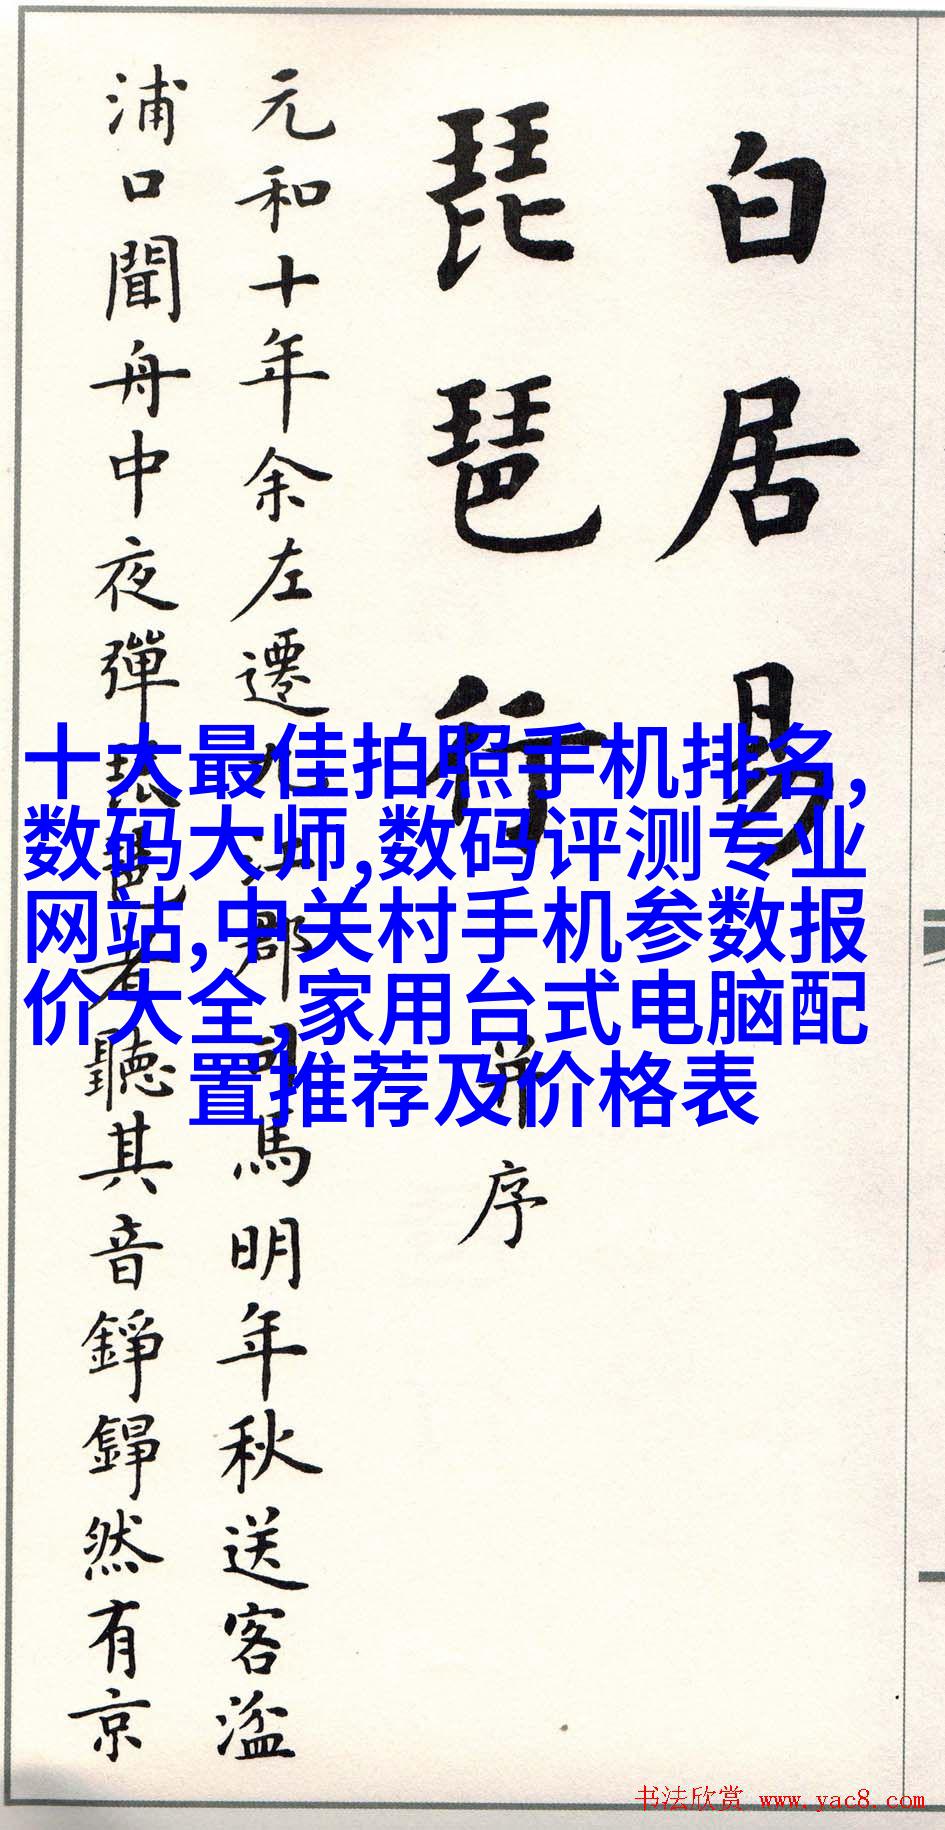 白居易
琵琶行并序
元和十年余左遷九江郡司馬明年秋送客湓
浦口聞舟中夜彈琵琶者聽其音錚錚然有京
十大最佳拍照手机排名,
数码大师,数码评测专业
网站,中关村手机参数报
价大全,家用台式电脑配
置推荐及价格表
书法欣赏 www.yac8.com